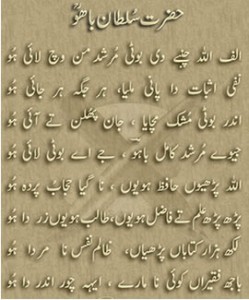 حضرت سُلطان باھوؒ
الف اللہ چنبے دی بوٹی مُرشد من وچ لائی ہُو
نفی اثبات دا پانی ملیا، ہر جگہ ہر جائی ہُو
اندر بوٹی مُشک مچایا ، جان پھلن تے آئی ہُو
جیوے مُرشد کامل باہو ، جے اے بوٹی لائی ہُو
اللہ پڑھیوں حافظ ہویوں ، نا گیا حجابُ پردہ ہُو
پڑھ پڑھ علم تے فاضل ہویوں، طالب ہویوں زر دا ہُو
لکھ ہزار کتاباں پڑھیاں، ظالم نفس نا مردا ہُو
باھ فقیراں کوئی نا مارے ، ایہہ چور اندر دا ہُو